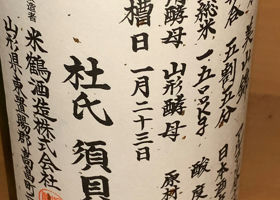 五割五分 日本酒
総米 一五〇〇 酸度
用酵母 山形酵母 原材
槽日 一月二十三日
杜氏 須貝
造者 米鶴酒造株式会社
山形県東置賜郡高畠町